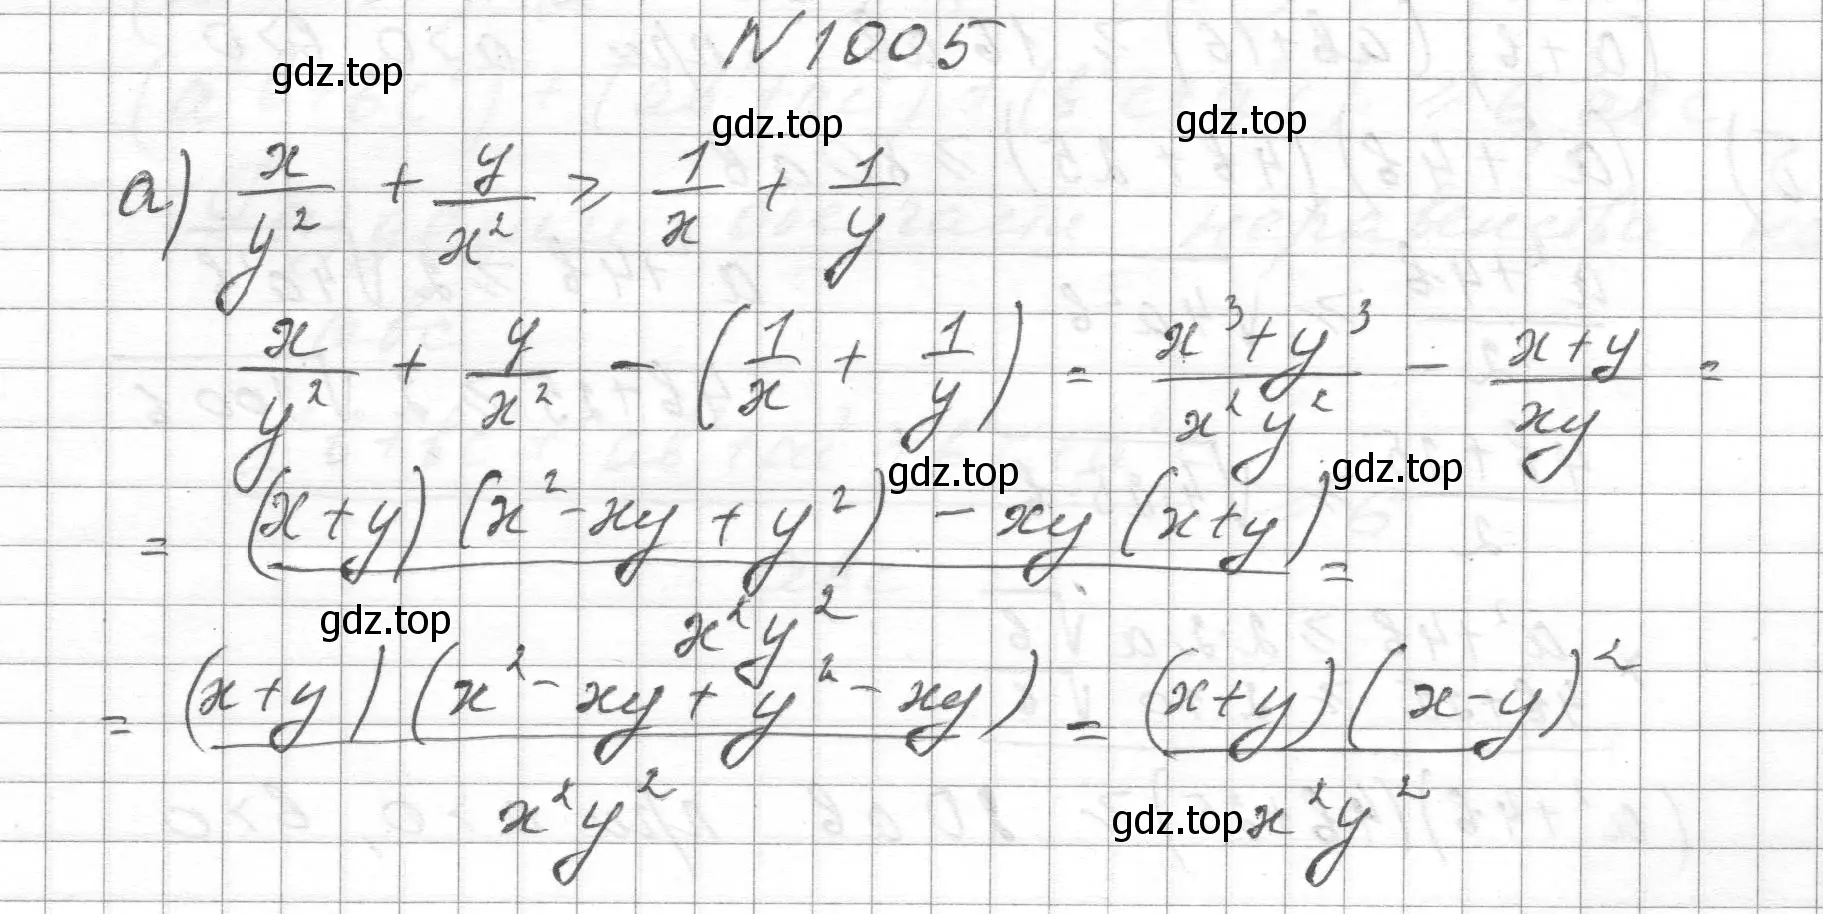 N 1005
gdz.top
gdz.top
gdz.top
а) x/y² + y/x² ≥ 1/x + 1/y
x/y² + y/x² - (1/x + 1/y) = (x³+y³)/(x²y²) - (x+y)/(xy) =
gdz.top
gdz.top
= ((x+y)(x²-xy+y²) - xy(x+y))/(x²y²) =
gdz.top
= ((x+y)(x²-xy+y²-xy))/(x²y²) = ((x+y)(x-y)²)/(x²y²)
gdz.top